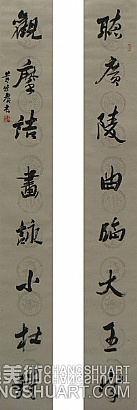 聽廣陵曲臨大王
觀摩詰畫詠小杜詩
CHANGSHUART